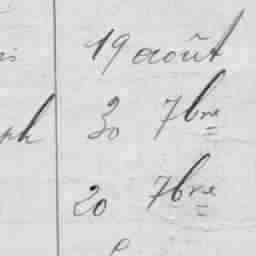 19 août
30 7bre
20 7bre